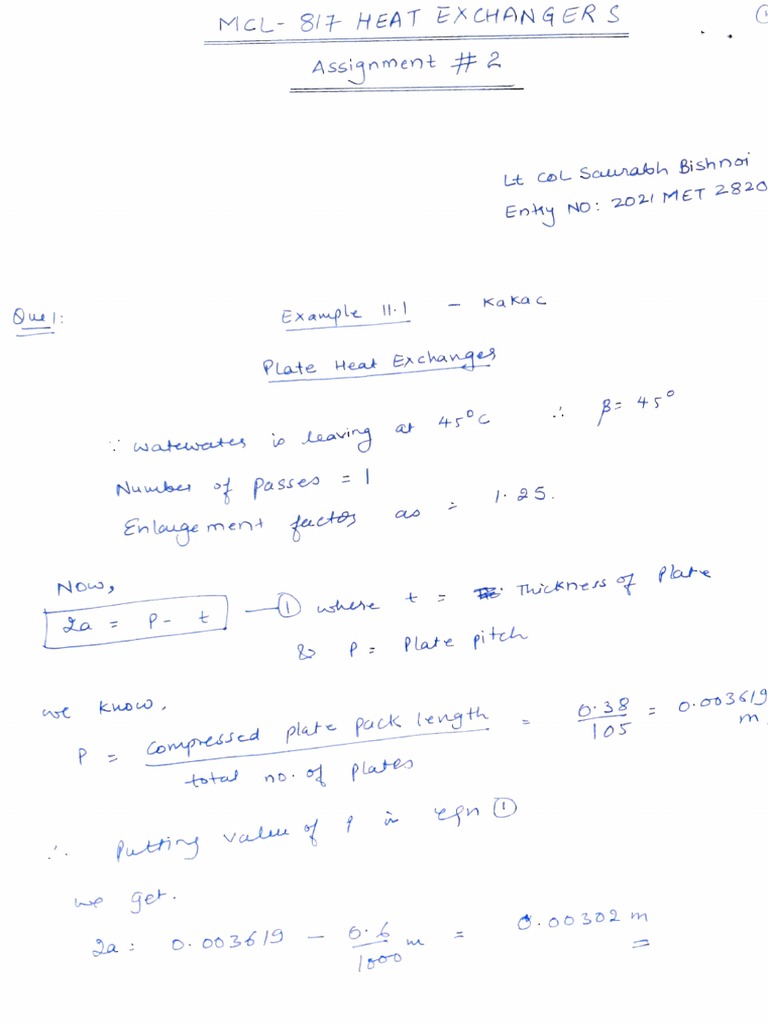 MCL-817 HEAT EXCHANGERS
Assignment # 2
Lt COL Saurabh Bishnoi
Entry NO: 2021 MET 2820
Que 1:
Example 11.1 - Kakac
Plate Heat Exchanges
∵ watewates is leaving at 45°C ∴ β = 45°
Number of passes = 1
Enlargement factor as = 1.25.
Now,
2a = P - t — ① where t = Thickness of Plate
& P = Plate pitch
we know,
P = compressed plate pack length / total no. of plates = 0.38 / 105 = 0.003619 m
∴ Putting value of P in eqn ①
we get.
2a = 0.003619 - 0.6 / 1000 m = 0.00302 m